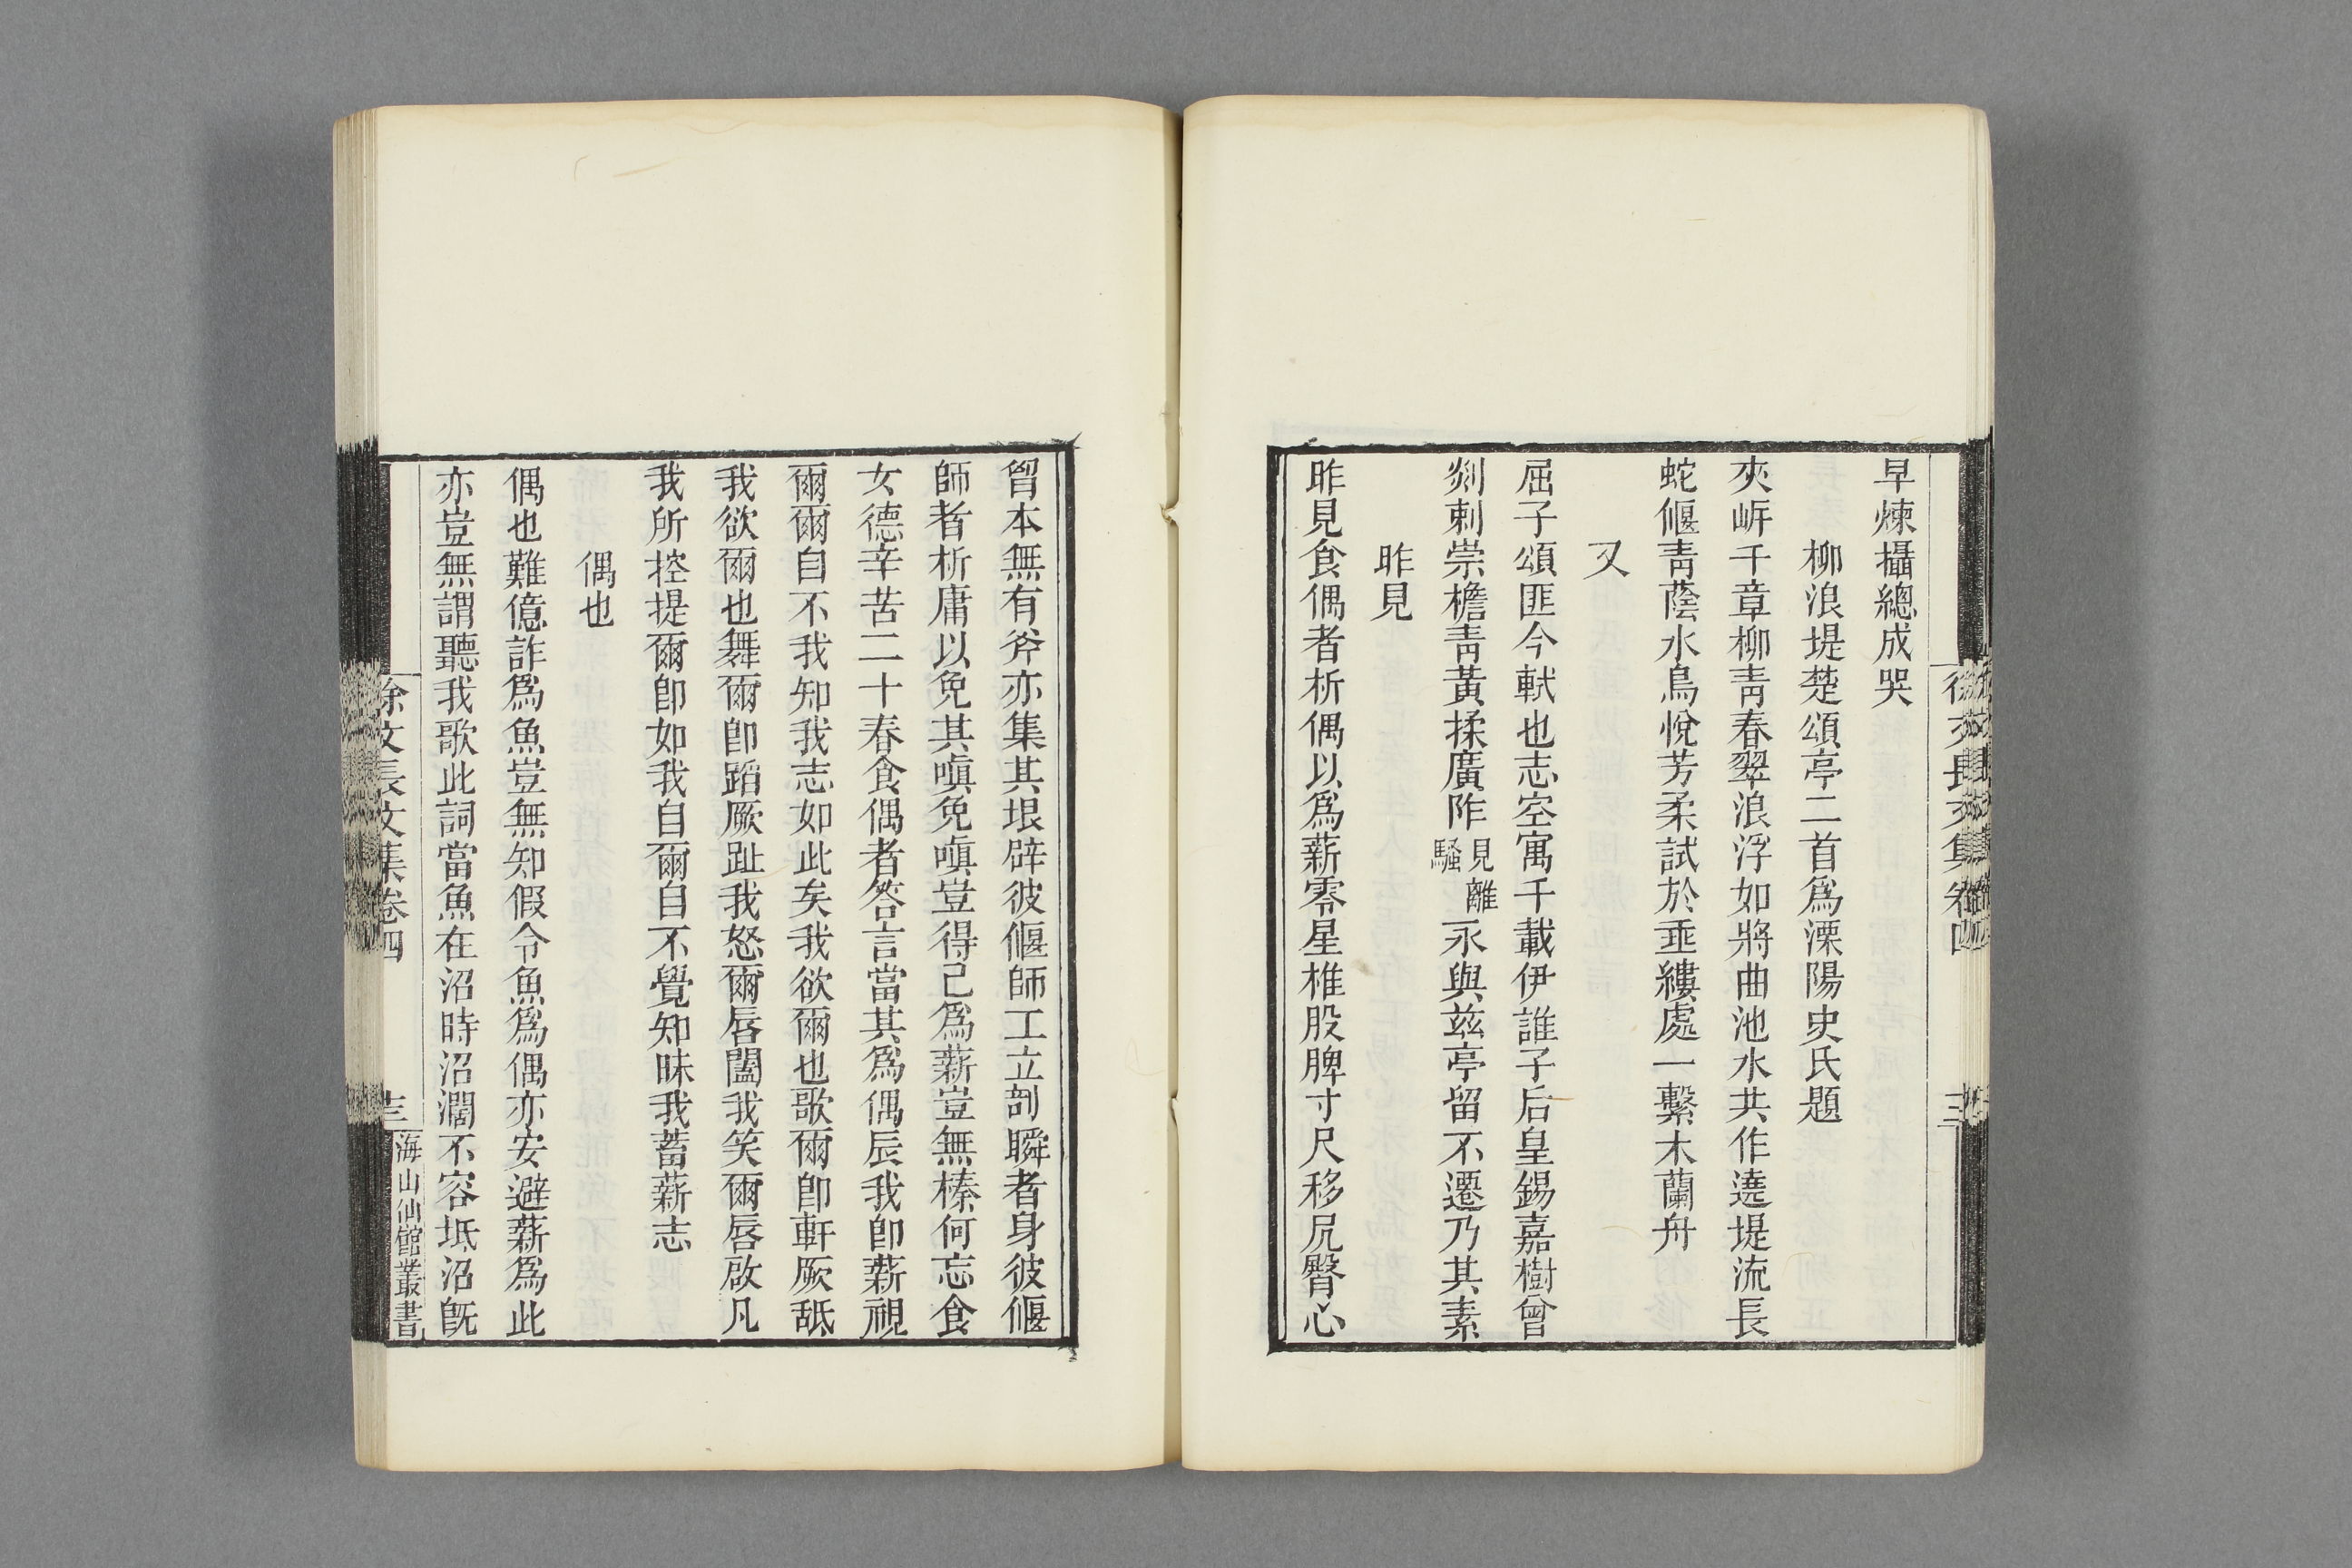 早煉攝總成哭
柳浪堤楚頌亭二首爲溧陽史氏題
夾㟁千章柳靑春翠浪浮如將曲池水共作遶堤流長
蛇偃靑蔭水鳥悅芳柔試於埀縷處一繫木蘭舟
又
屈子頌匪今軾也志空寓千載伊誰子后皇錫嘉樹曾
剡刺崇檐靑黃揉廣阼見離騷永與兹亭留不遷乃其素
昨見
昨見食偶者析偶以爲薪零星椎股脾寸尺移尻臀心
胷本無有斧亦集其垠辟彼偃師工立剖瞬者身彼偃
師者析庸以免其嗔免嗔豈得已爲薪豈無榛何忘食
女德辛苦二十春食偶者答言當其爲偶辰我卽薪視
爾爾自不我知我志如此矣我欲爾也歌爾卽軒厥舐
我欲爾也舞爾卽蹈厥趾我怒爾唇闔我笑爾唇啟凡
我所控提爾卽如我自爾自不覺知昧我蓄薪志
偶也
偶也難億詐爲魚豈無知假令魚爲偶亦安避薪爲此
亦豈無謂聽我歌此詞當魚在沼時沼濶不容坻沼旣
徐文長文集卷四
十三
海山仙館叢書